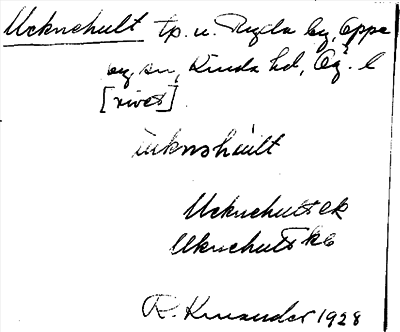 Ucknehult tp. u. Rydla by, Oppe
by sn, Kinda hd, Ög. l
[rivet]
uknshúlt
Ucknehult ek
Uknehult ks
R. Knander 1928